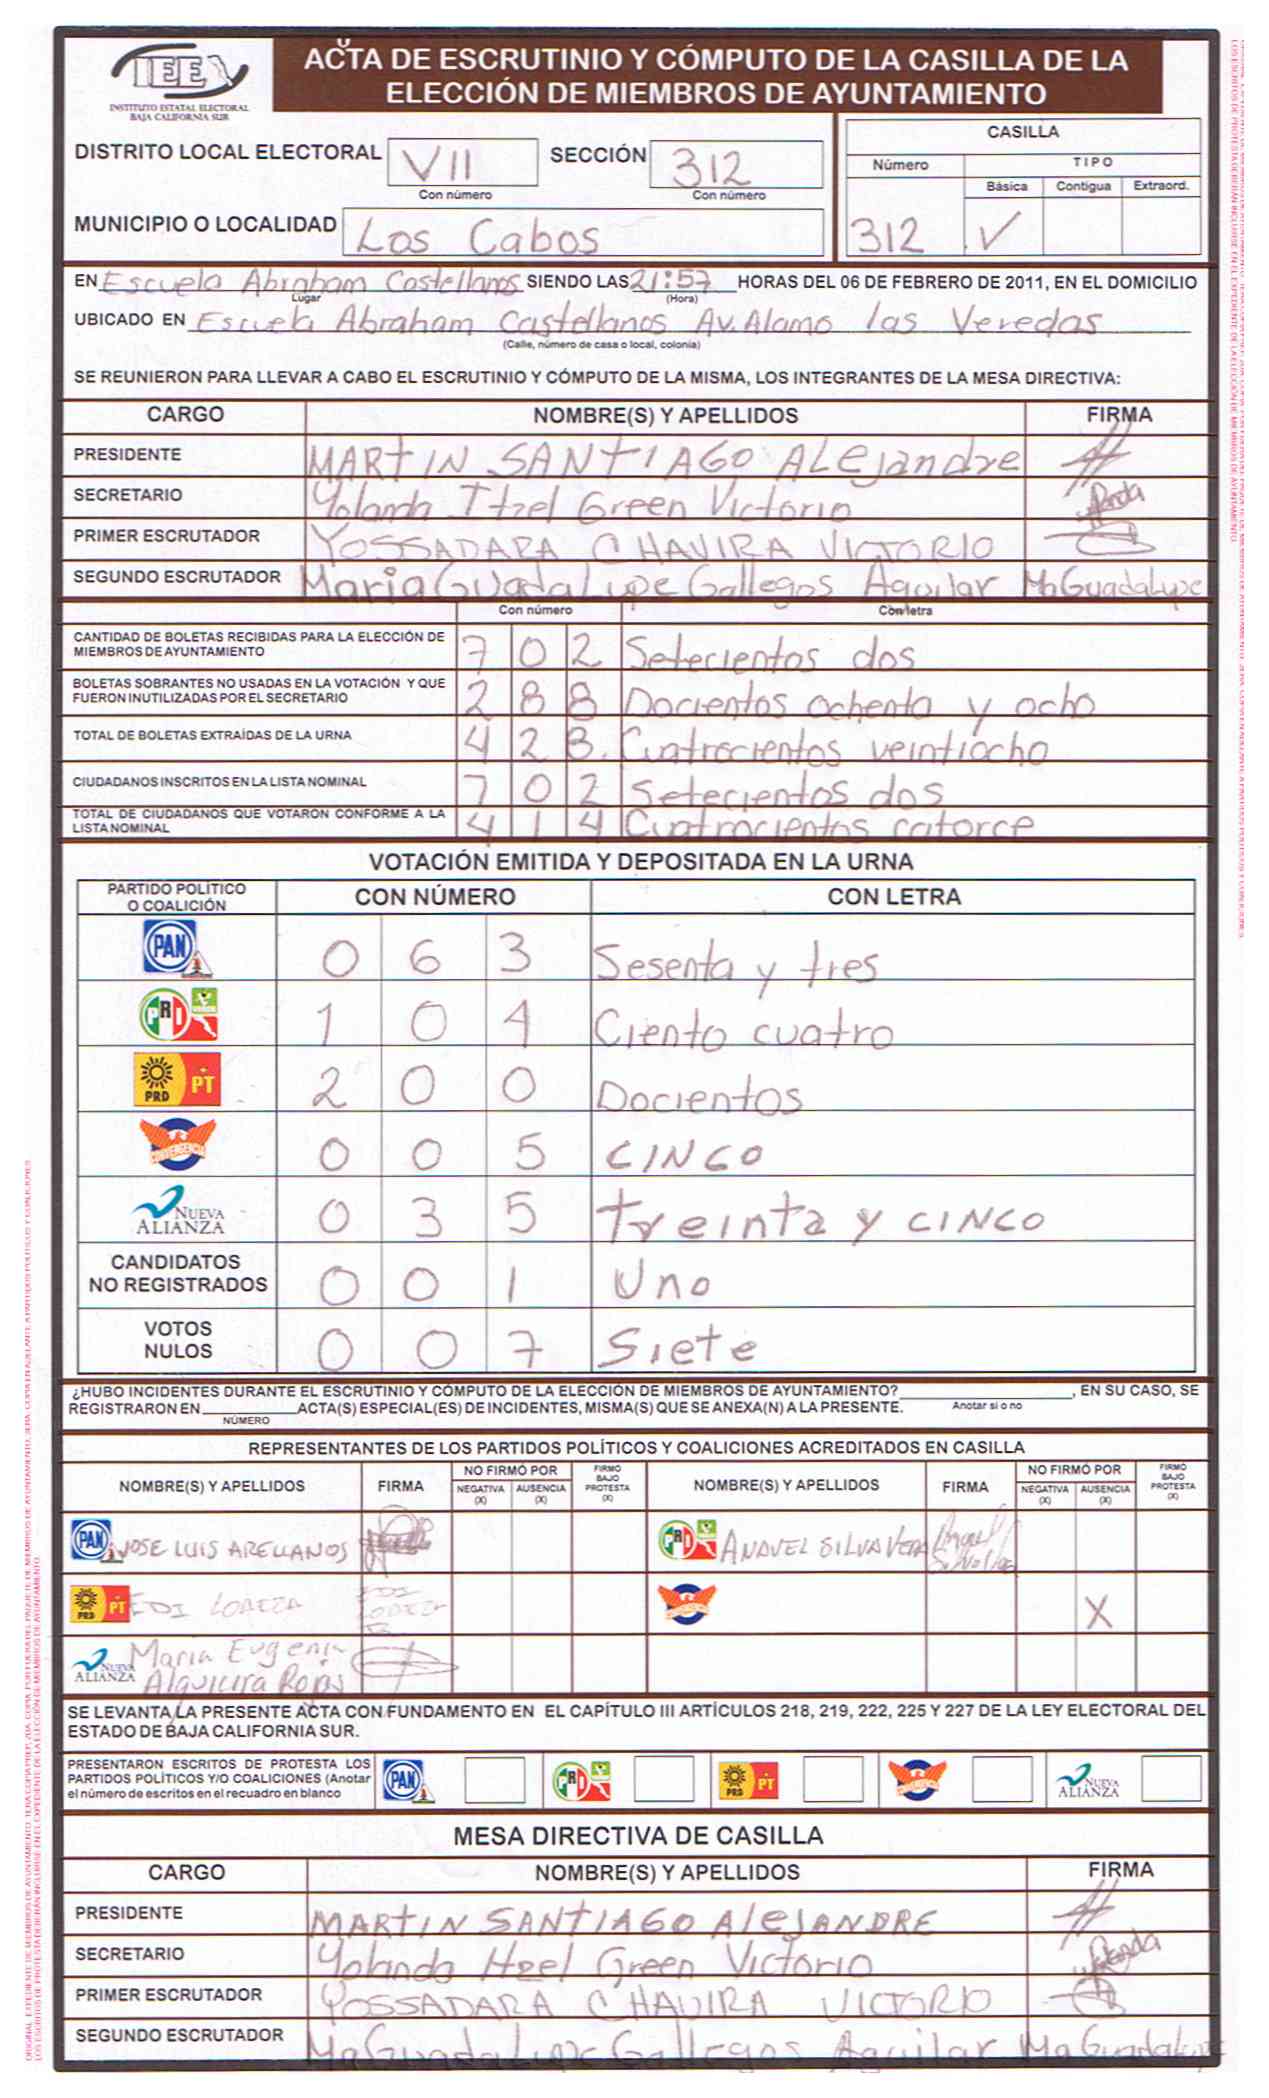 ACTA DE ESCRUTINIO Y CÓMPUTO DE LA CASILLA DE LA
ELECCIÓN DE MIEMBROS DE AYUNTAMIENTO
IEE
INSTITUTO ESTATAL ELECTORAL
BAJA CALIFORNIA SUR
DISTRITO LOCAL ELECTORAL VII SECCIÓN 312
Con número Con número
MUNICIPIO O LOCALIDAD Los Cabos
CASILLA
Número TIPO
Básica Contigua Extraord.
312 ✓
EN Escuela Abraham Castellanos SIENDO LAS 21:57 HORAS DEL 06 DE FEBRERO DE 2011, EN EL DOMICILIO
Lugar (Hora)
UBICADO EN Escuela Abraham Castellanos Av. Alamo las Veredas
(Calle, número de casa o local, colonia)
SE REUNIERON PARA LLEVAR A CABO EL ESCRUTINIO Y CÓMPUTO DE LA MISMA, LOS INTEGRANTES DE LA MESA DIRECTIVA:
CARGO NOMBRE(S) Y APELLIDOS FIRMA
PRESIDENTE MARTIN SANTIAGO ALejandre
SECRETARIO Yolanda Itzel Green Victorio
PRIMER ESCRUTADOR YOSSADARA CHAVIRA VICTORIO
SEGUNDO ESCRUTADOR Maria GuadaLupe Gallegos Aguilar Ma Guadalupe
Con número Con letra
CANTIDAD DE BOLETAS RECIBIDAS PARA LA ELECCIÓN DE
MIEMBROS DE AYUNTAMIENTO 7 0 2 Setecientos dos
BOLETAS SOBRANTES NO USADAS EN LA VOTACIÓN Y QUE
FUERON INUTILIZADAS POR EL SECRETARIO 2 8 8 Docientos ochenta y ocho
TOTAL DE BOLETAS EXTRAÍDAS DE LA URNA 4 2 8. Cuatrocientos veintiocho
CIUDADANOS INSCRITOS EN LA LISTA NOMINAL 7 0 2 Setecientos dos
TOTAL DE CIUDADANOS QUE VOTARON CONFORME A LA
LISTA NOMINAL 4 1 4 Cuatrocientos catorce
VOTACIÓN EMITIDA Y DEPOSITADA EN LA URNA
PARTIDO POLÍTICO
O COALICIÓN CON NÚMERO CON LETRA
PAN 0 6 3 Sesenta y tres
PRI 1 0 4 Ciento cuatro
PRD PT 2 0 0 Docientos
CONVERGENCIA 0 0 5 CINCO
NUEVA ALIANZA 0 3 5 Treinta y CINCO
CANDIDATOS
NO REGISTRADOS 0 0 1 Uno
VOTOS
NULOS 0 0 7 Siete
¿HUBO INCIDENTES DURANTE EL ESCRUTINIO Y CÓMPUTO DE LA ELECCIÓN DE MIEMBROS DE AYUNTAMIENTO?, EN SU CASO, SE
REGISTRARON EN ACTA(S) ESPECIAL(ES) DE INCIDENTES, MISMA(S) QUE SE ANEXA(N) A LA PRESENTE. Anotar si o no
NÚMERO
REPRESENTANTES DE LOS PARTIDOS POLÍTICOS Y COALICIONES ACREDITADOS EN CASILLA
NOMBRE(S) Y APELLIDOS FIRMA NO FIRMÓ POR NEGATIVA (X) AUSENCIA (X) FIRMÓ BAJO PROTESTA (X) NOMBRE(S) Y APELLIDOS FIRMA NO FIRMÓ POR NEGATIVA (X) AUSENCIA (X) FIRMÓ BAJO PROTESTA (X)
PAN JOSE LUIS ARELLANOS PRI ANAVEL SILVA VERA
PRD PT EDI LOAIZA EDI LOAIZA CONVERGENCIA X
NUEVA ALIANZA Maria Eugenia
Rojas
SE LEVANTA LA PRESENTE ACTA CON FUNDAMENTO EN EL CAPÍTULO III ARTÍCULOS 218, 219, 222, 225 Y 227 DE LA LEY ELECTORAL DEL
ESTADO DE BAJA CALIFORNIA SUR.
PRESENTARON ESCRITOS DE PROTESTA LOS
PARTIDOS POLÍTICOS Y/O COALICIONES (Anotar
el número de escritos en el recuadro en blanco
PAN PRI PRD PT CONVERGENCIA NUEVA ALIANZA
MESA DIRECTIVA DE CASILLA
CARGO NOMBRE(S) Y APELLIDOS FIRMA
PRESIDENTE MARTIN SANTIAGO AleJANDRE
SECRETARIO Yolanda Itzel Green Victorio
PRIMER ESCRUTADOR YOSSADARA CHAVIRA VICTORIO
SEGUNDO ESCRUTADOR Ma GuadaLupe Gallegos Aguilar Ma Guadalupe